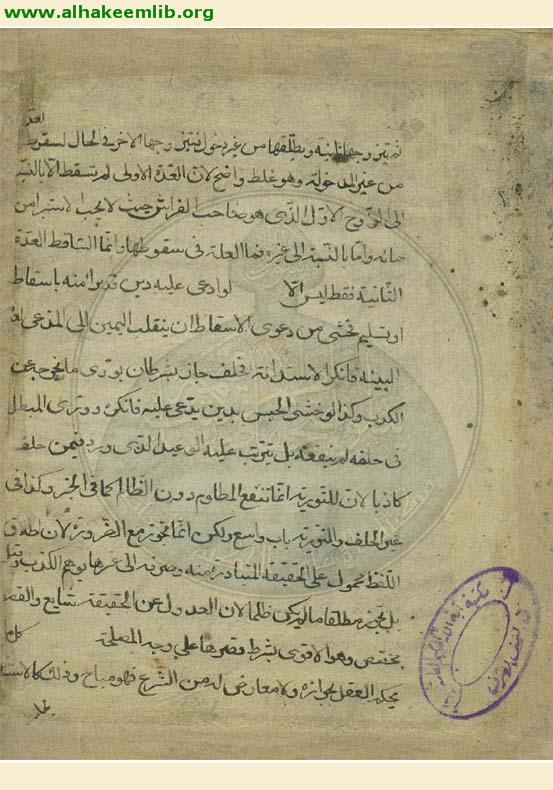 www.alhakeemlib.org
ثم يتزوجها ثانية ويطلقها من غير دخول فيتزوجها الآخر في الحال لسقوط
من غير المدخولة وهو غلط واضح لان العدة الاولى لم تسقط الا بالنسبة
الى الزوج الاول الذي هو صاحب الفراش حيث لا يجب الاستبراء من
مائه واما بالنسبة الى غيره فما العلة في سقوطها وانما الساقط العدة
الثانية فقط ليس الا لو ادعى عليه دين قد برأ منه باسقاط
او تسليم فخشى من دعوى الاسقاط ان ينقلب اليمين الى المدعى
البينة فانكر الاستدانة فحلف جاز بشرط ان يورى ما يخرجه عن
الكذب وكذا لو خشى الحبس بدين يدعى عليه فانكره وتورى المبطل
في حلفه لم ينفعه بل يترتب عليه الوعيد الذي ورد فيمن حلف
كاذبا لان التورية انما تنفع المظلوم دون الظالم كما في الخبر وكذا في
غير الحلف والتورية باب واسع ولكن انما تجوز مع الضرورة لان اطلاق
اللفظ محمول على الحقيقة المتبادرة منه وصرفه الى غيرها يوهم الكذب وقيل
بل تجوز مطلقا ما لم يكن ظالما لان العدول عن الحقيقة شايع
بمختص وهو الاقوى بشرط وقصرها على وجه المصلحة كل
يحكم العقل بجوازه ولا معارض له من الشرع فهو مباح وذلك